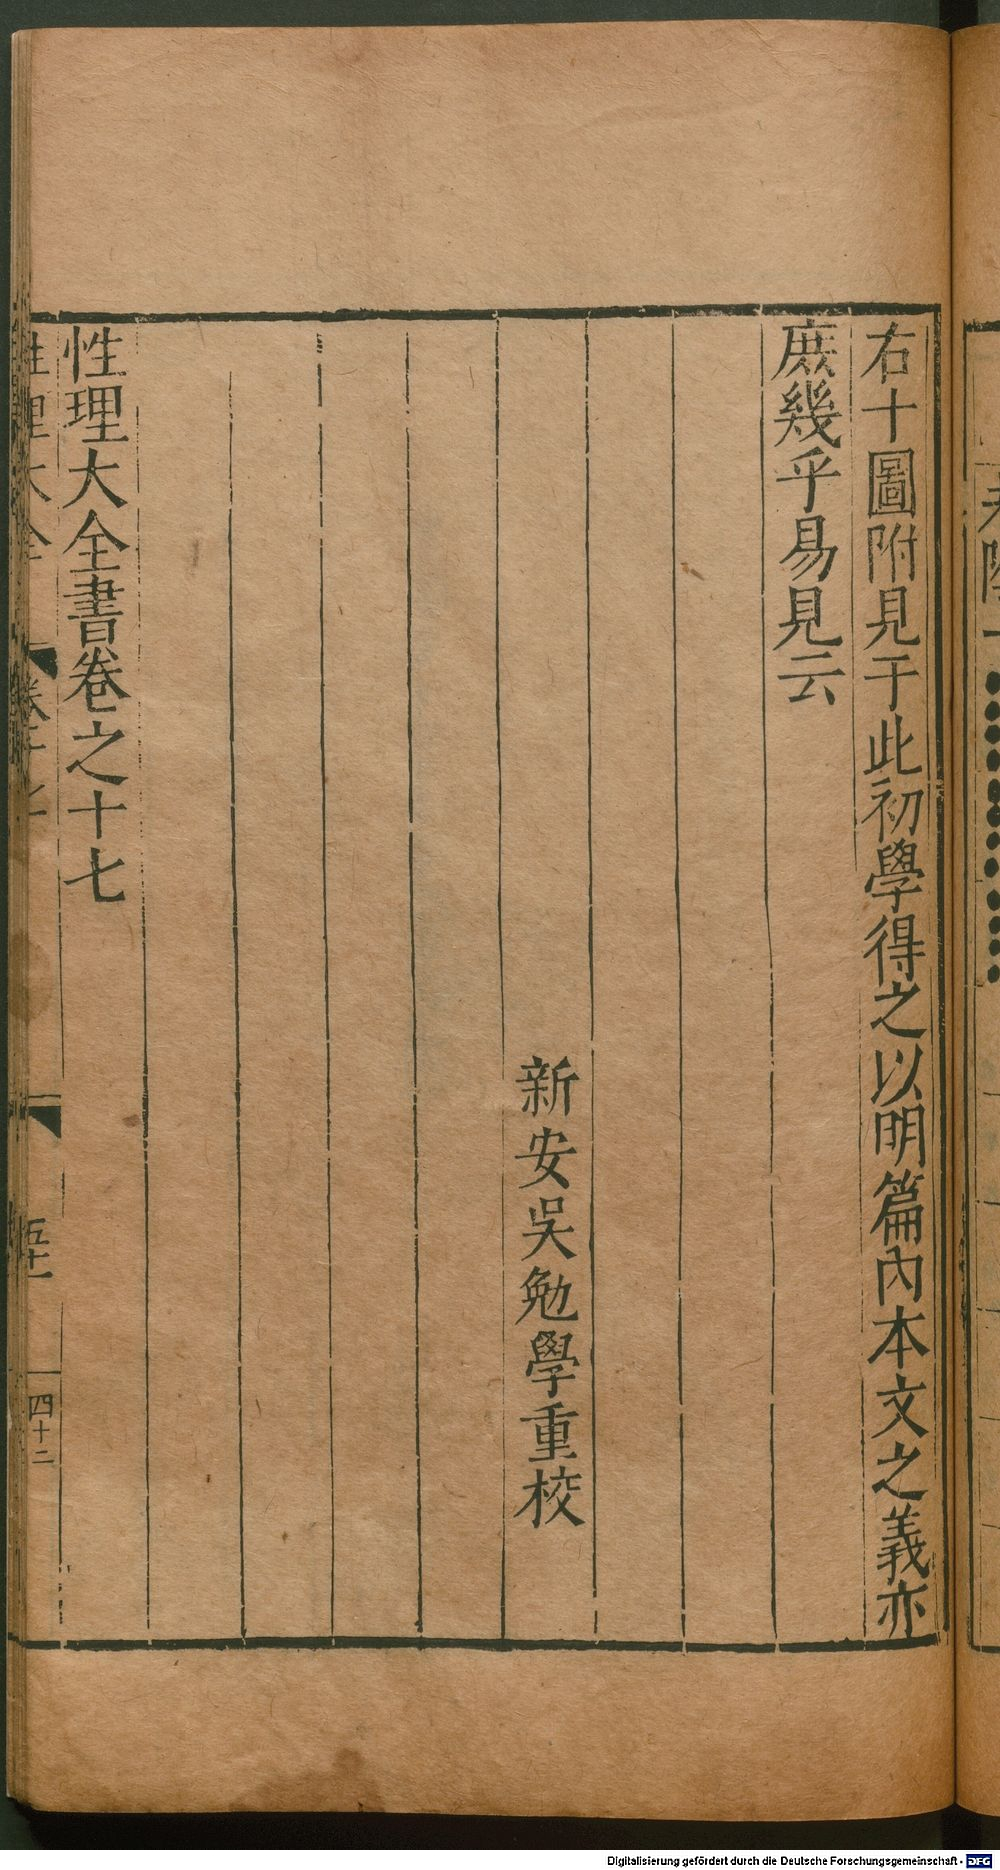 右十圖附見于此初學得之以明篇內本文之義亦
庶幾乎易見云
新安吳勉學重校
性理大全書卷之十七
性理大全
五十一
四十二
Digitalisierung gefördert durch die Deutsche Forschungsgemeinschaft - DFG